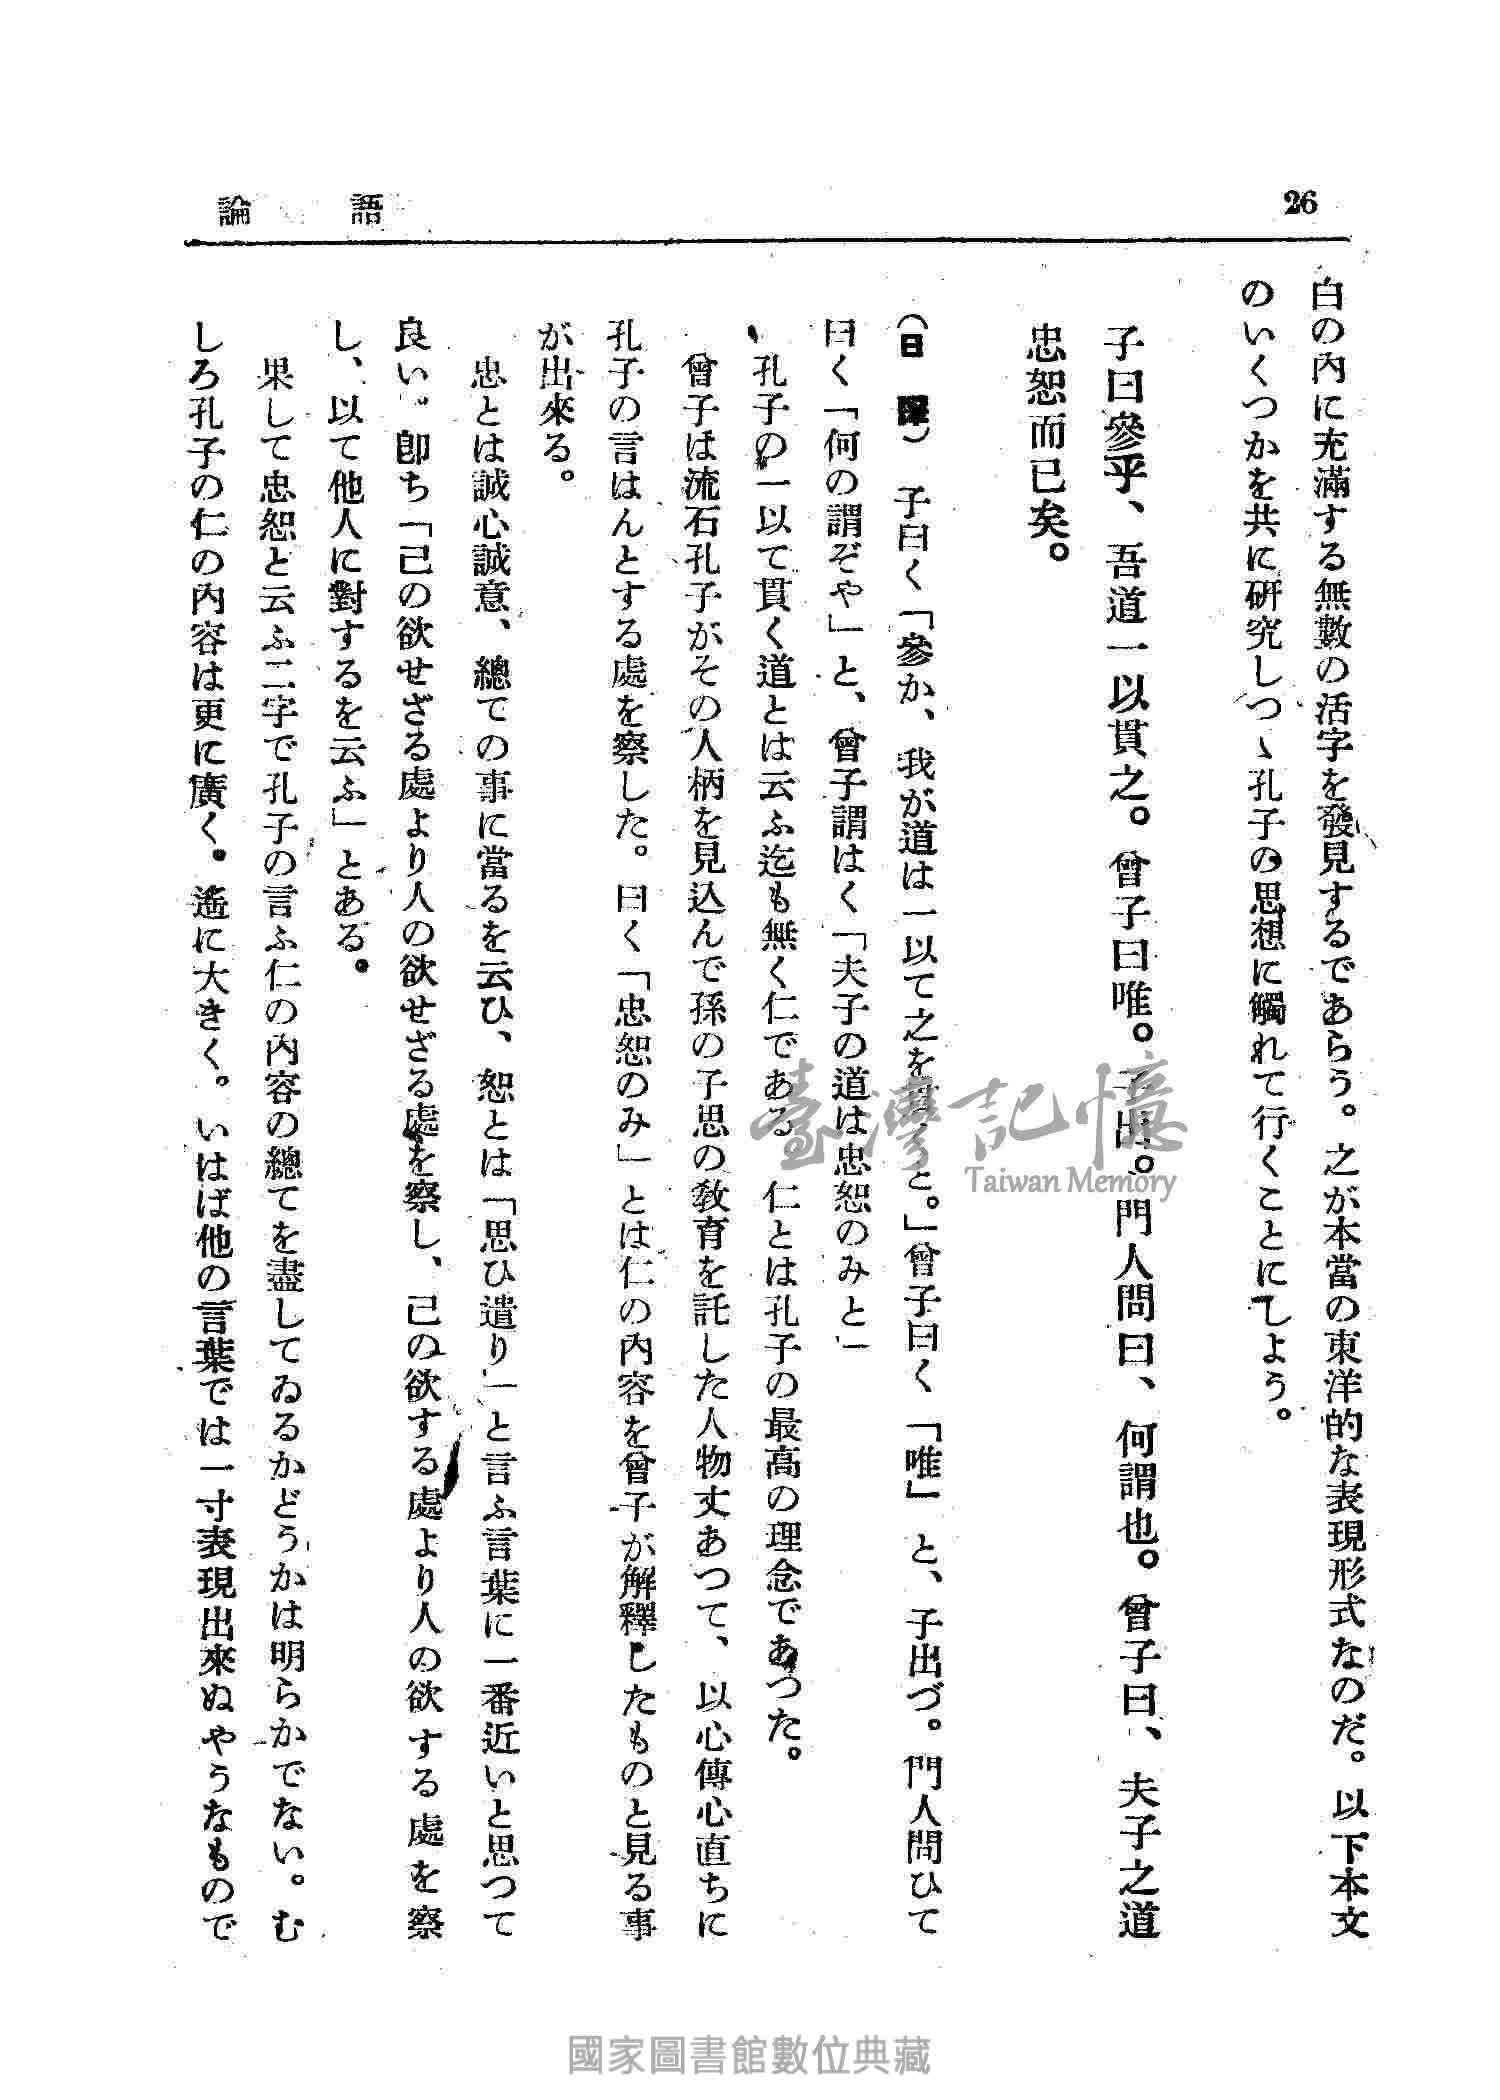 論語
26
白の內に充滿する無數の活字を發見するであらう。之が本當の東洋的な表現形式なのだ。以下本文
のいくつかを共に研究しつゝ孔子の思想に觸れて行くことにしよう。
子曰參乎、吾道一以貫之。曾子曰唯。子出。門人問曰、何謂也。曾子曰、夫子之道
忠恕而已矣。
（日譯）子曰く「參か、我が道は一以て之を と。」曾子曰く「唯」と、子出づ。門人問ひて
曰く「何の謂ぞや」と、曾子謂はく「夫子の道は忠恕のみと」
孔子の一以て貫く道とは云ふ迄も無く仁である 仁とは孔子の最高の理念であつた。
曾子は流石孔子がその人柄を見込んで孫の子思の敎育を託した人物丈あつて、以心傳心直ちに
孔子の言はんとする處を察した。曰く「忠恕のみ」とは仁の內容を曾子が解釋したものと見る事
が出來る。
忠とは誠心誠意、總ての事に當るを云ひ、恕とは「思ひ遣り」と言ふ言葉に一番近いと思つて
良い。卽ち「己の欲せざる處より人の欲せざる處を察し、己の欲する處より人の欲する處を察
し、以て他人に對するを云ふ」とある。
果して忠恕と云ふ二字で孔子の言ふ仁の內容の總てを盡してゐるかどうかは明らかでない。む
しろ孔子の仁の內容は更に廣く。遙に大きく。いはば他の言葉では一寸表現出來ぬやうなもので
臺灣記憶
Taiwan Memory
國家圖書館數位典藏